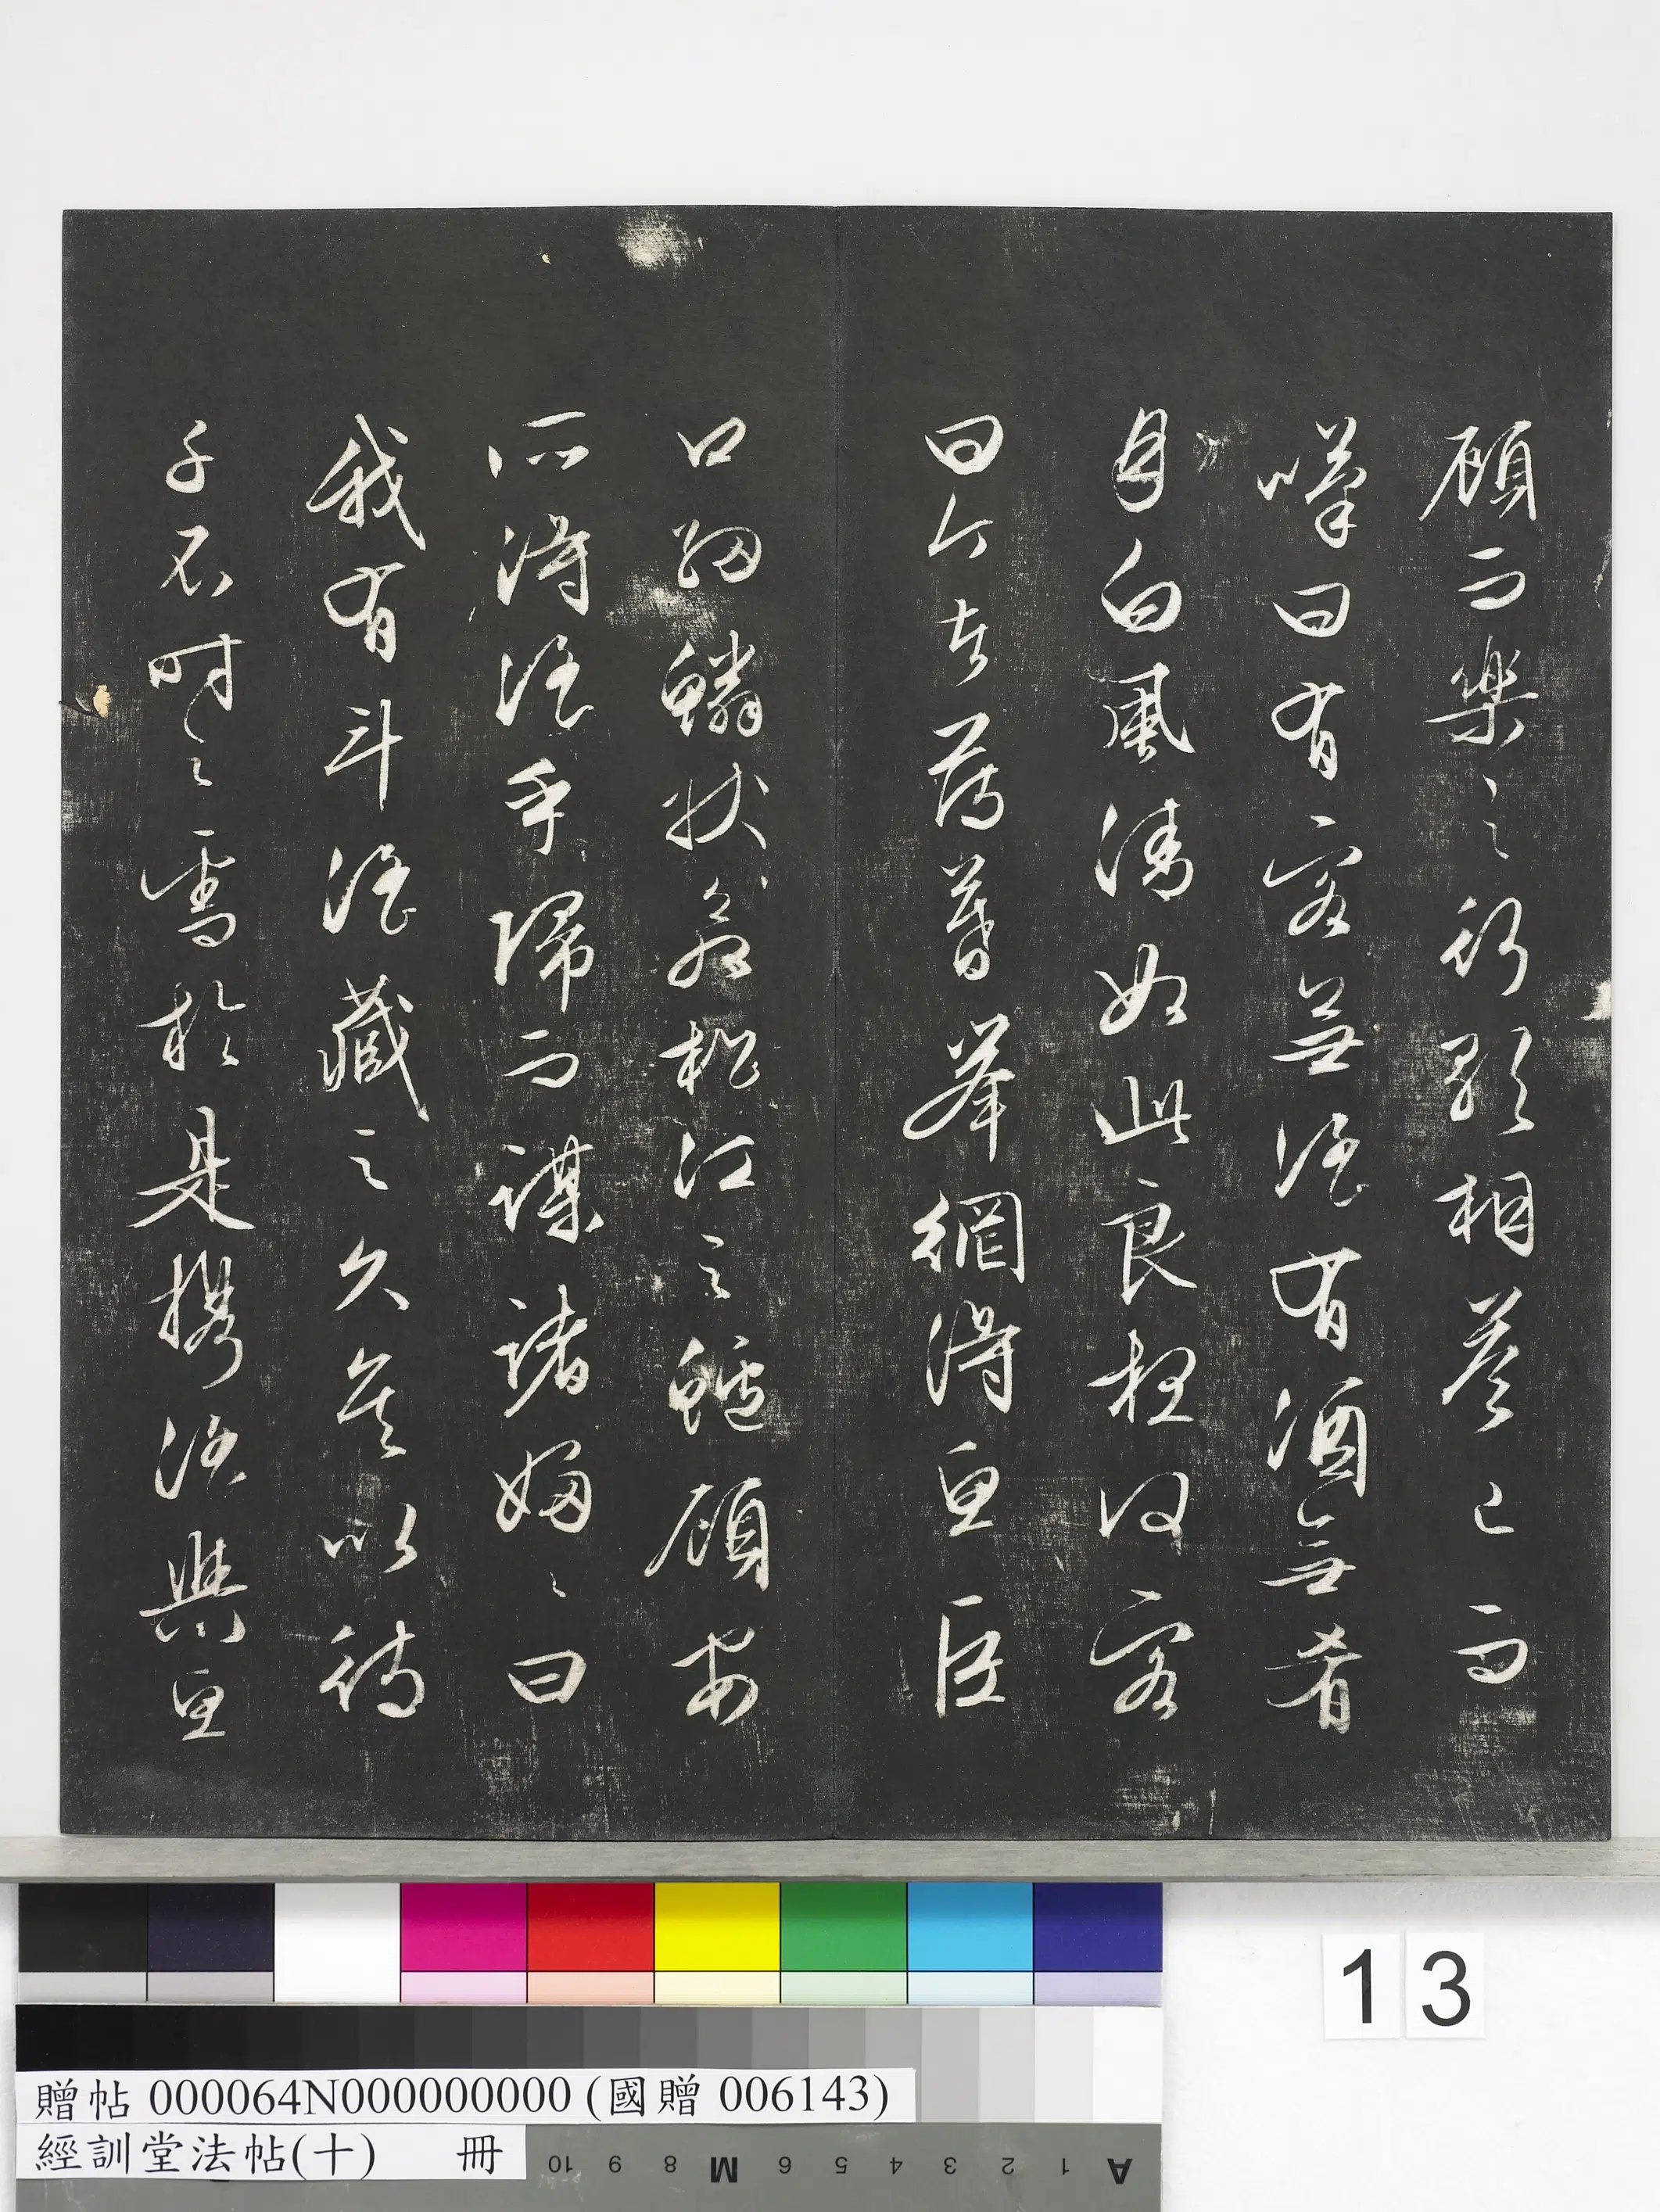 顧而樂之行歌相答已而
嘆曰有客無酒有酒無肴
月白風清如此良夜何客
曰今者薄暮舉網得魚巨
口細鱗狀松江之鱸顧安
所得酒乎歸而謀諸婦〻曰
我有斗酒藏之久矣以待
子不時之需於是攜酒與魚
13
贈帖 000064N000000000 (國贈 006143)
經訓堂法帖(十) 冊
10 9 8 M 6 5 4 3 2 1 A